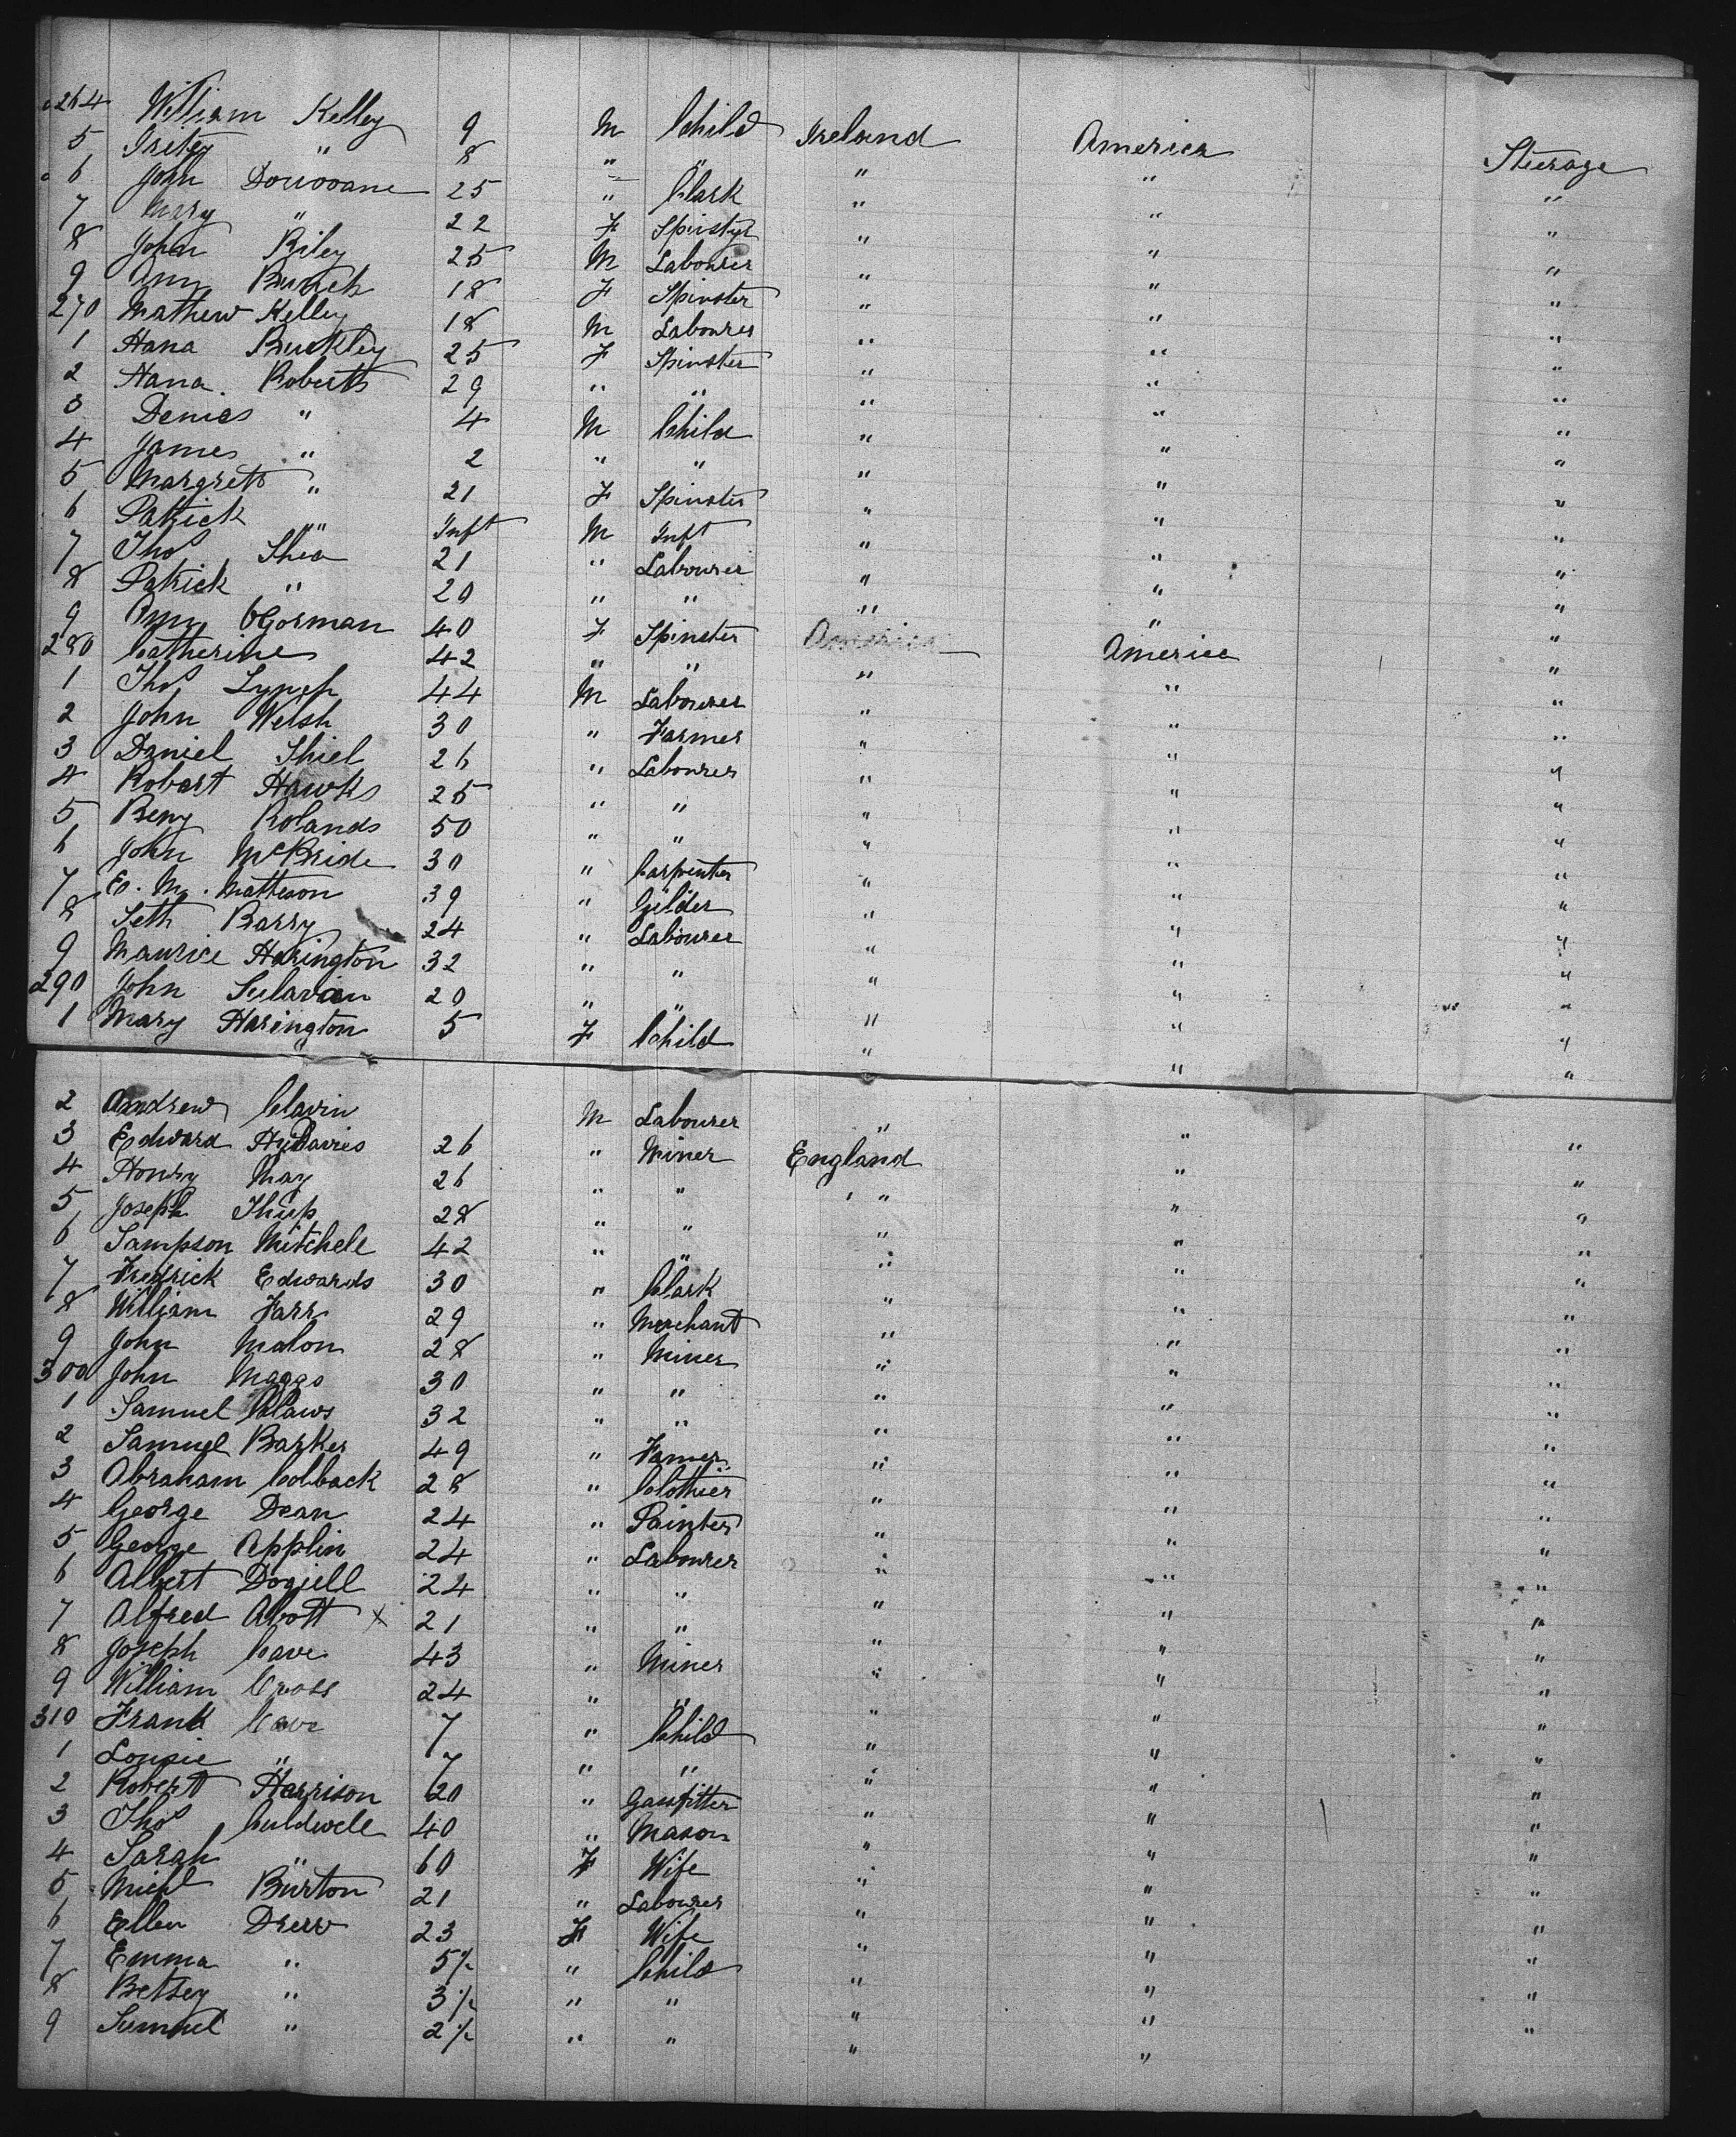 264 William Kelley 9 M Child Ireland America Steerage
5 " 8 " " " " "
6 John Donovane 25 " Clark " " "
7 Mary " 22 F Spinster " " "
8 John Riley 25 M Labourer " " "
9 Ann 18 F Spinster " " "
270 Mathew Kelley 18 M Labourer " " "
1 Hana Buckley 25 F Spinster " " "
2 Hana Roberts 29 " " " " "
3 Denies " 4 M Child " " "
4 James " 2 " " " " "
5 Margrett " 21 F Spinster " " "
6 Patrick " Inft M Inft " " "
7 Thos Shea 21 " Labourer " " "
8 Patrick " 20 " " " " "
9 Ann OGorman 40 F Spinster America America "
280 Catherine 42 " " " " "
1 Thos Lynch 44 M Labourer " " "
2 John Welsh 30 " Farmer " " "
3 Daniel Shiel 26 " Labourer " " "
4 Robert Hawks 25 " " " " "
5 Benj Rolands 50 " " " " "
6 John McBride 30 " Carpenter " " "
7 E. M. Matteson 39 " Gilder " " "
8 Seth Barry 24 " Labourer " " "
9 Maurice Harington 32 " " " " "
290 John Sulavan 20 " " " " "
1 Mary Harington 5 F Child " " "
2 Andrew Clavin M Labourer " " "
3 Edward Hy Davies 26 " Miner England " "
4 Henry May 26 " " " " "
5 Joseph 28 " " " " "
6 Sampson Mitchell 42 " " " " "
7 Fredrick Edwards 30 " Clark " " "
8 William Farr 29 " Merchant " " "
9 John Malon 28 " Miner " " "
300 John Maggs 30 " " " " "
1 Samuel Claws 32 " " " " "
2 Samuel Barker 49 " Famer " " "
3 Abraham Colback 28 " Clothier " " "
4 George Dean 24 " Painter " " "
5 George Applin 24 " Labourer " " "
6 Albert 24 " " " " "
7 Alfred Abott x 21 " " " " "
8 Joseph Cave 43 " Miner " " "
9 William Cross 24 " " " " "
310 Frank Cave 7 " Child " " "
1 Lousie " 7 " " " " "
2 Robert Harrison 20 " Gassfitter " " "
3 Thos Culdwell 40 " Mason " " "
4 Sarah " 60 F Wife " " "
5 Michl Burton 21 " Labourer " " "
6 Ellen Drew 23 F Wife " " "
7 Emma " 5 1/2 " Child " " "
8 Betsey " 3 1/2 " " " " "
9 Samuel " 2 1/2 " " " " "